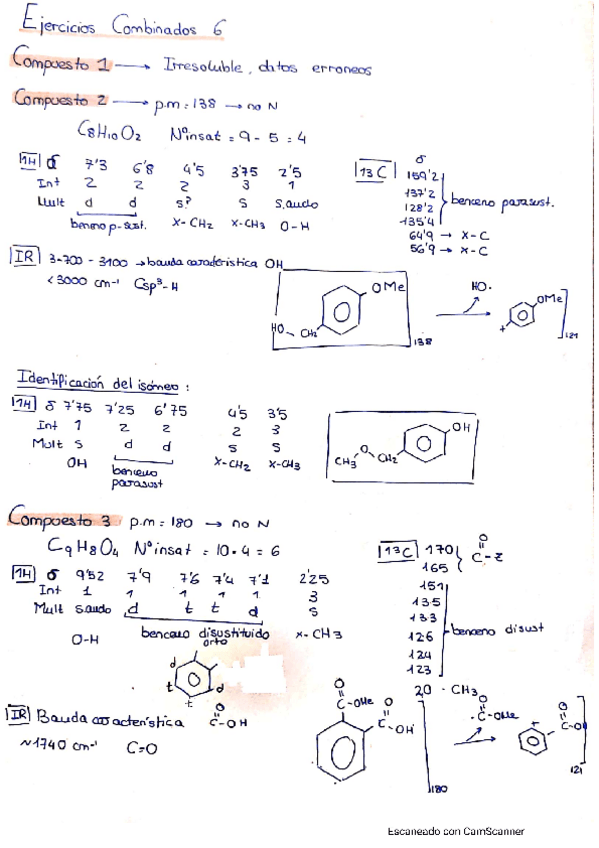 Ejercicios Combinados 6
Compuesto 1 → Irresoluble, datos erroneos
Compuesto 2 → p.m = 138 → no N
C8H10O2 Nºinsat = 9 - 5 = 4
1H δ 7'3 6'8 4'5 3'75 2'5
Int 2 2 2 3 1
Mult d d s? s s.ancho
benceno p-sust. X-CH2 X-CH3 O-H
13C δ
159'2
137'2
128'2
135'4
benceno parasust.
64'9 → X-C
56'9 → X-C
IR 3700 - 3100 → banda característica OH
<3000 cm-1 Csp3-H
OMe
HO-CH2
138
HO·
OMe
+
121
Identificación del isómero:
1H δ 7'75 7'25 6'75 4'5 3'5
Int 1 2 2 2 3
Mult s d d s s
OH benceno parasust X-CH2 X-CH3
OH
CH3 O CH2
Compuesto 3 p.m = 180 → no N
C9H8O4 Nºinsat = 10 - 4 = 6
1H δ 9'52 7'9 7'6 7'4 7'1 2'25
Int 1 1 1 1 1 3
Mult s.ancho d t t d s
O-H benceno disustituido orto X-CH3
d
t
t
d
13C 170
165
O
C-Z
151
135
133
126
124
123
benceno disust
20 - CH3
IR Banda característica O C-OH
~1740 cm-1 C=O
O
C-OMe
O
C-OH
180
O
·C-OMe
+
O
121
Escaneado con CamScanner